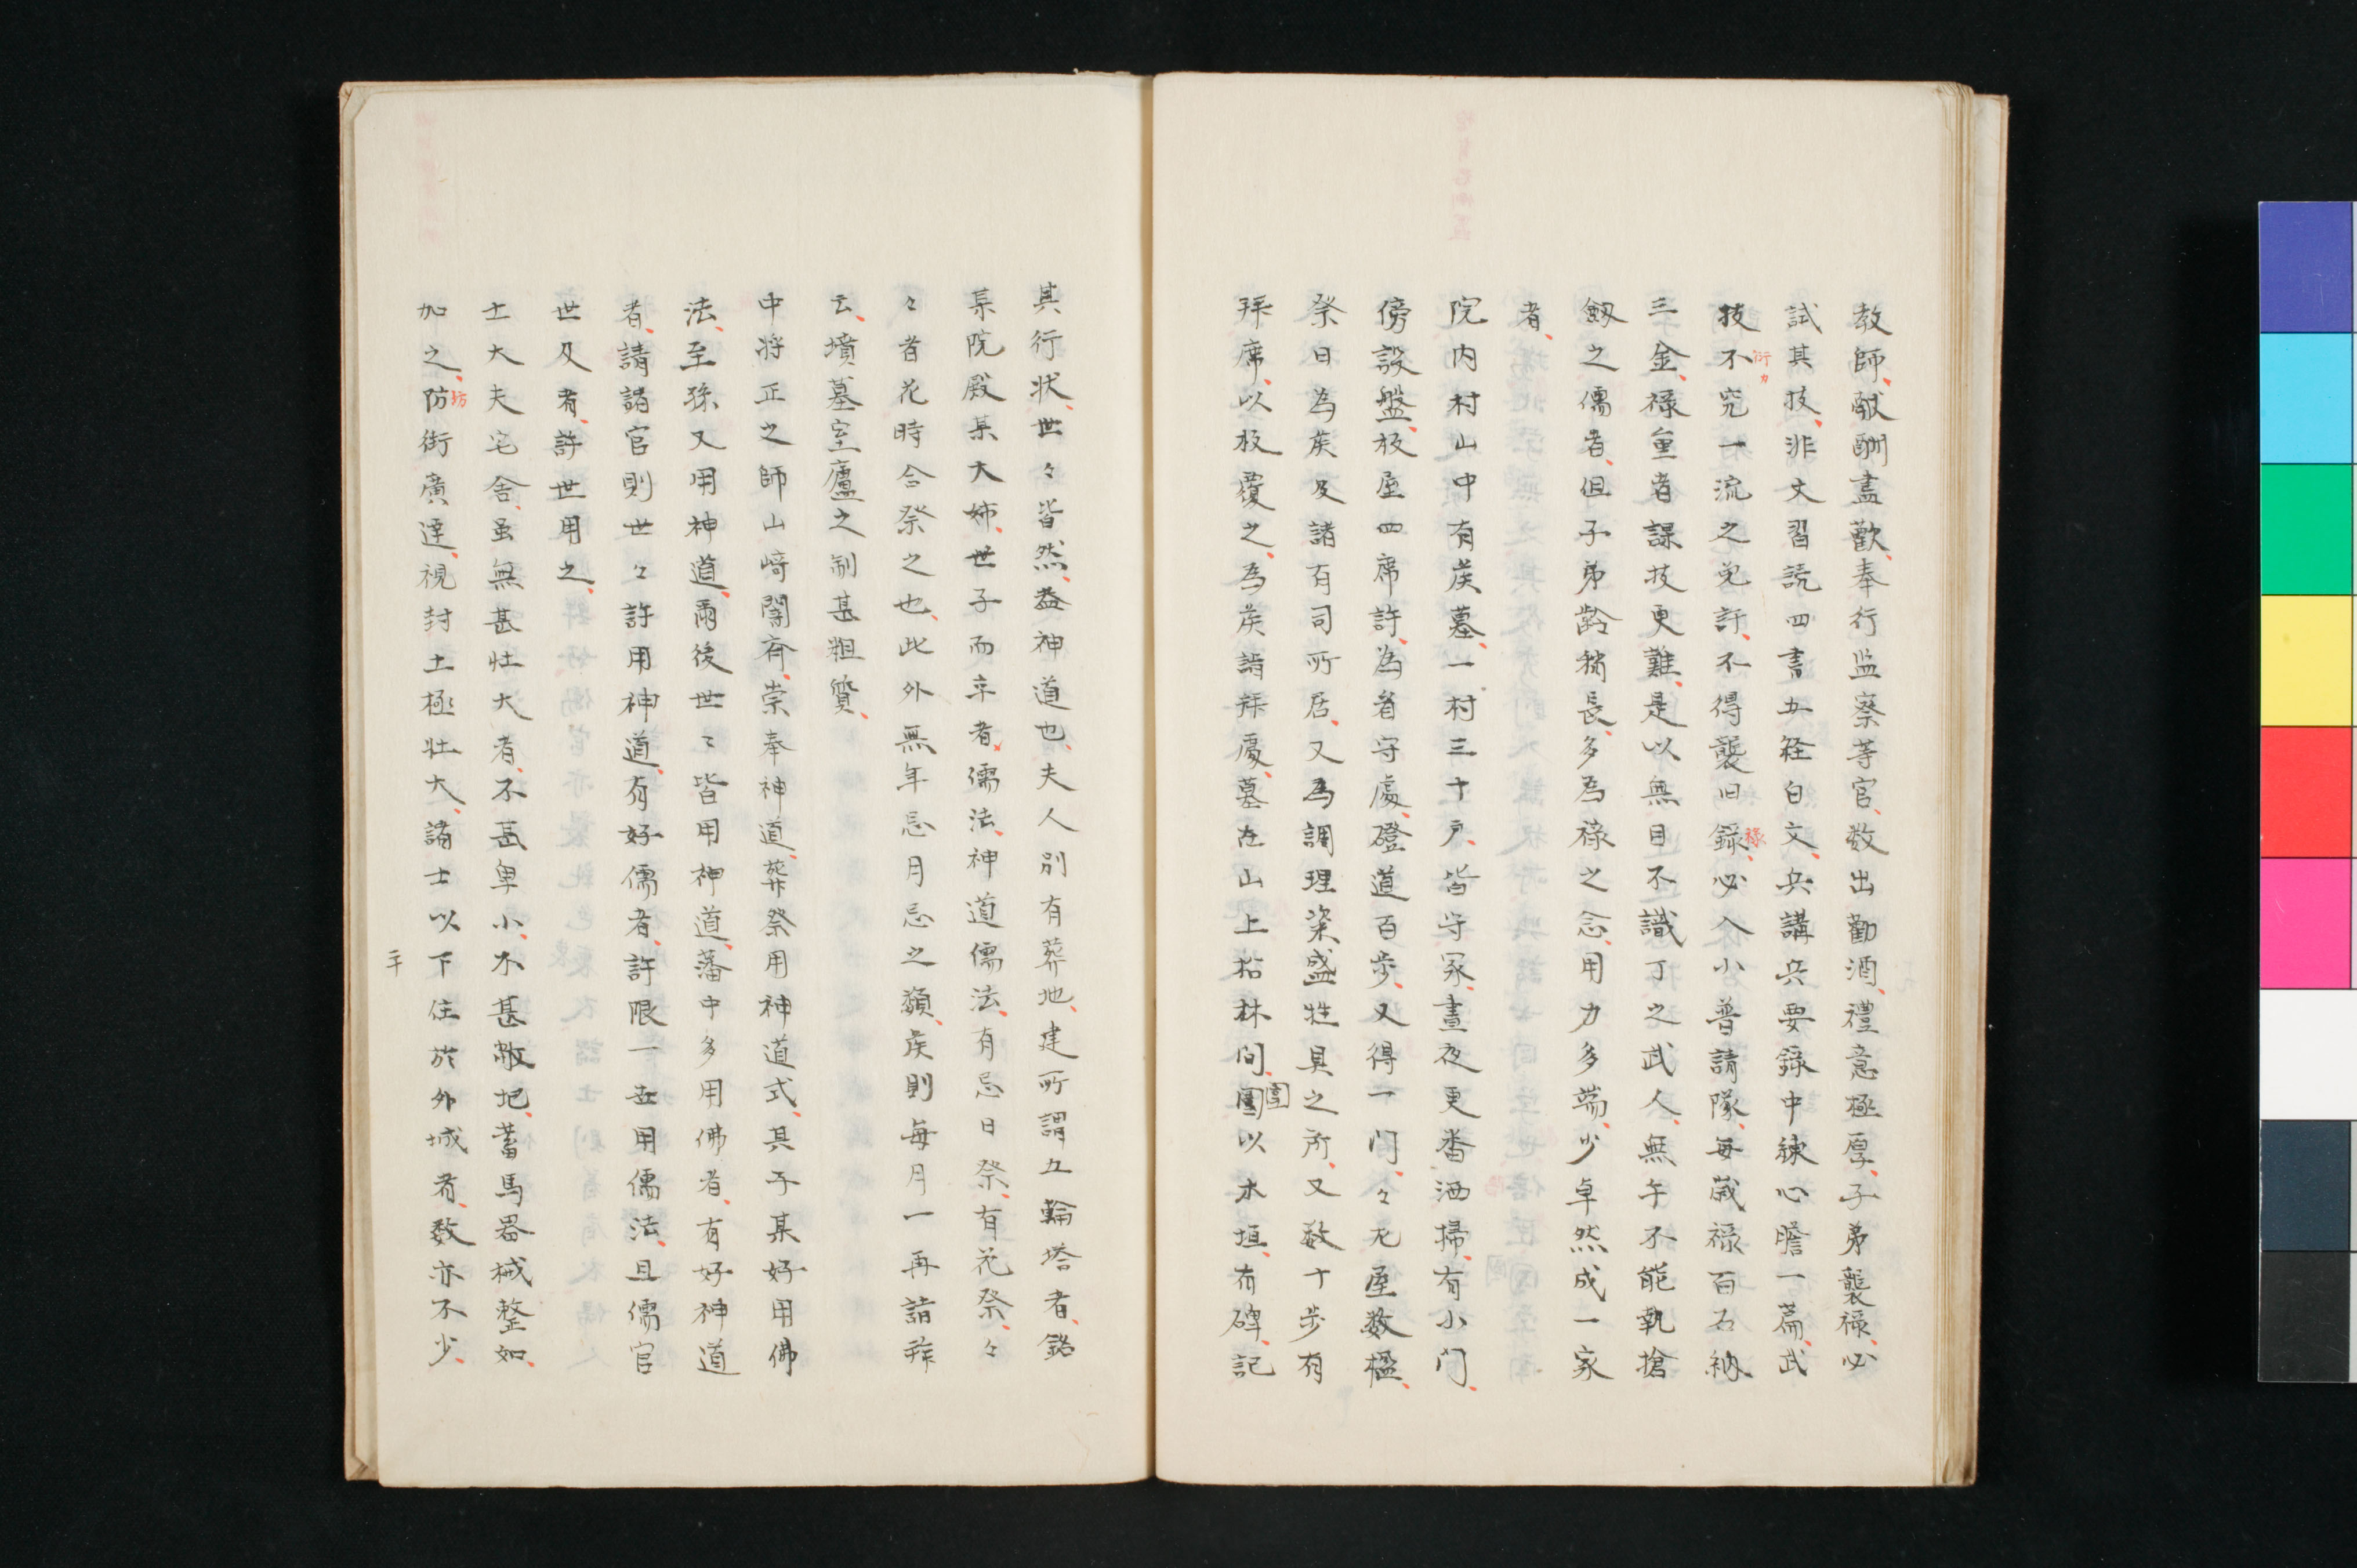 教師、献酬盡歡、奉行监察等官、数出勸酒、禮意極厚、子弟襲禄、必
試其技、非丈習読四書五経白文、兵講兵要録中練心胆一篇、武
技不衍カ究一流之免許、不得襲旧録禄、必入小普請隊、毎歳禄百石納
三金、禄重者課技更難、是以無目不識丁之武人、無手不能執搶
劔之儒者、但子弟齡稍長、多為禄之念、用力多端、少卓然成一家
者、
院内村山中有侯墓、一村三十戸、皆守冢、晝夜更番洒掃、有小门、
傍設盤、板屋四席許、為者守處、磴道百歩、又得一门、々左屋数楹、
祭日為侯及諸有司所居、又為調理粢盛牲具之所、又数十歩有
拜席、以板覆之、為侯詣拜處、墓在山上松林间、圍圍以木垣、有碑、記
其行状、世々皆然、葢神道也、夫人別有葬地、建所謂五輪塔者、銘
某院殿某大姉、世子而卒者、儒法、神道儒法、有忌日祭、有花祭、々
々者花時合祭之也、此外無年忌月忌之類、侯則毎月一再詣拜
云、墳墓室廬之制甚粗質、
中将正之師山﨑闇斎、崇奉神道、葬祭用神道式、其子某好用佛
法、至孫又用神道、爾後世々皆用神道、藩中多用佛者、有好神道
者、請諸官則世々許用神道、有好儒者、許限一世用儒法、且儒官
世及者、許世用之、
士大夫宅舎、虽無甚壮大者、不甚卑小、不甚敝圯、蓄馬畧械整如、
加之、防坊街廣達、視封土極壮大、諸士以下住於外城者、数亦不少、
二十